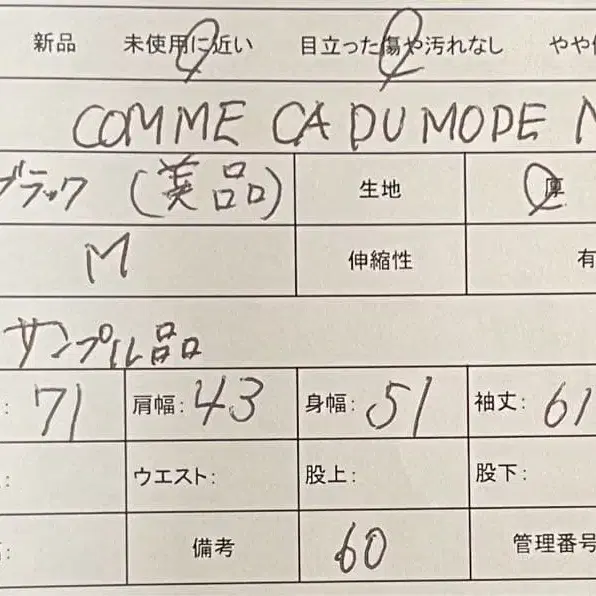 新品 未使用に近い 目立った傷や汚れなし やや
COMME CA DU MODE
ブラック (美品) 生地 厚
M 伸縮性 有
サンプル品
: 71 肩幅: 43 身幅: 51 袖丈: 61
: ウエスト: 股上: 股下:
: 備考 60 管理番号